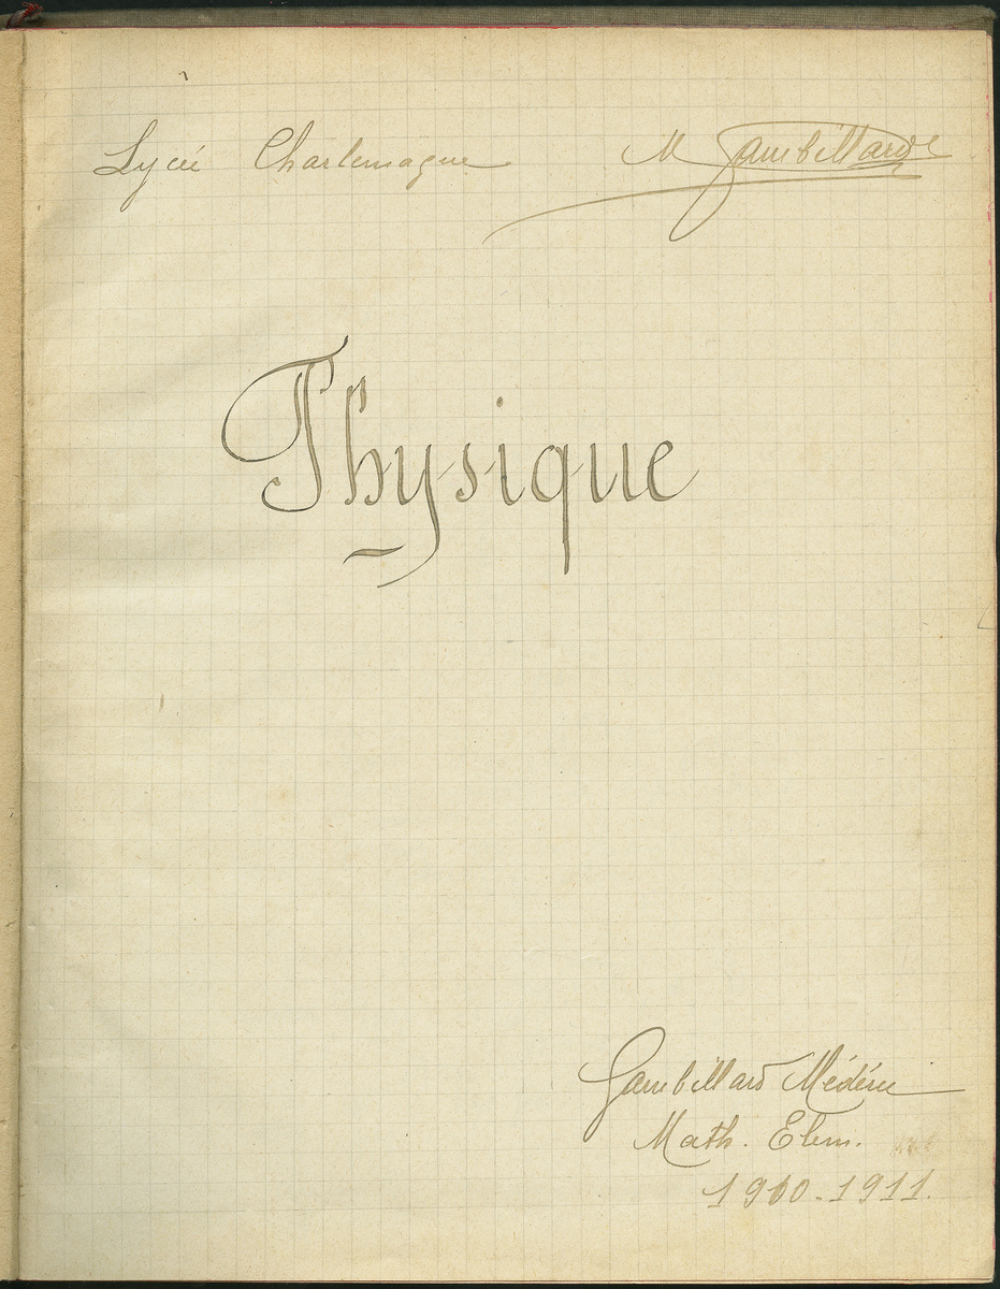 Lycée Charlemagne M Gambillard
Physique
Gambillard Médéric
Math. Elem.
1910-1911.